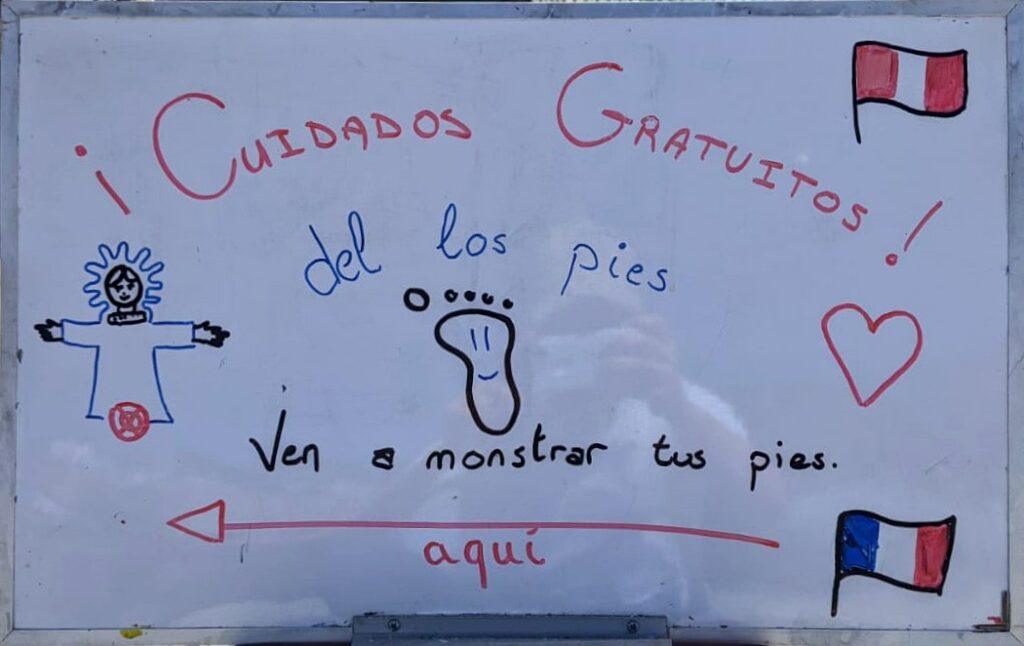 ¡ CUIDADOS GRATUITOS !
del los pies
Ven a monstrar tus pies.
aquí